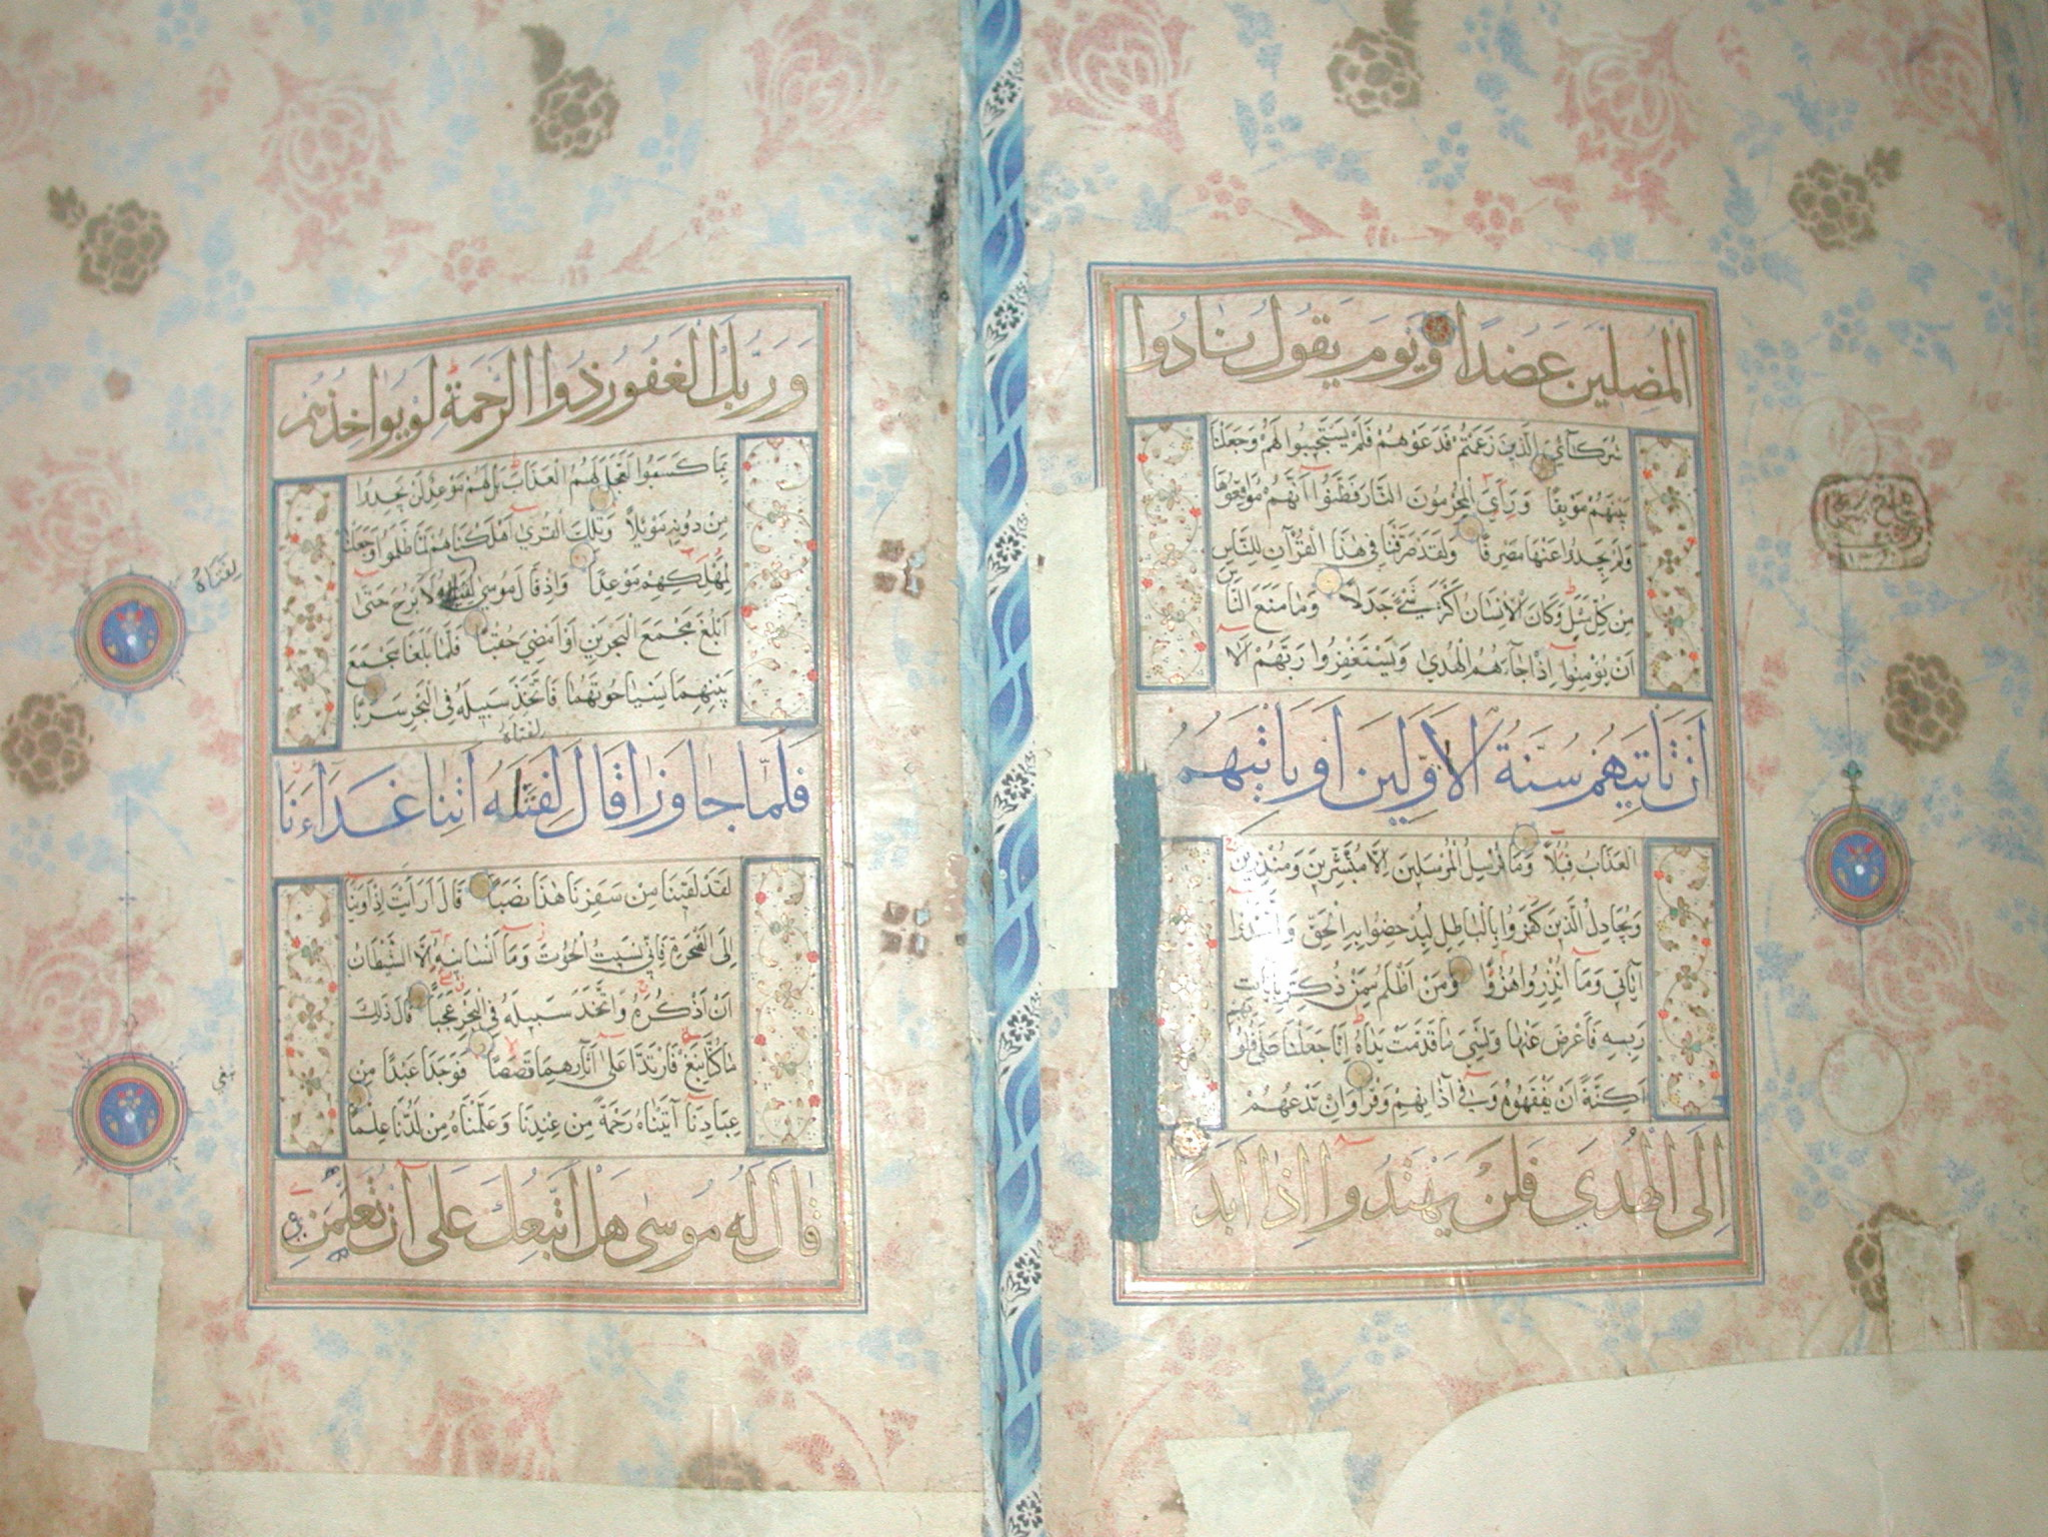 المضلين عضدا ويوم يقول نادوا
شركآئي الذين زعمتم فدعوهم فلم يستجيبوا لهم وجعلنا
بينهم موبقا ورأى المجرمون النار فظنوا انهم مواقعوها
ولم يجدوا عنها مصرفا ولقد صرفنا في هذا القرآن للناس
من كل مثل وكان الانسان اكثر شئ جدلا وما منع الناس
ان يؤمنوا اذ جاءهم الهدى ويستغفروا ربهم الا
ان تأتيهم سنة الاولين او يأتيهم
العذاب قبلا وما نرسل المرسلين الا مبشرين ومنذرين
ويجادل الذين كفروا بالباطل ليدحضوا به الحق واتخذوا
آياتي وما انذروا هزوا ومن اظلم ممن ذكر بايات
ربه فاعرض عنها ونسي ما قدمت يداه انا جعلنا على قلوبهم
اكنة ان يفقهوه وفي آذانهم وقرا وان تدعهم
الى الهدى فلن يهتدوا اذا ابدا
وربك الغفور ذوا الرحمة لو يؤاخذهم
بما كسبوا لعجل لهم العذاب بل لهم موعد لن يجدوا
من دونه موئلا وتلك القرى اهلكناهم لما ظلموا وجعلنا
لمهلكهم موعدا واذ قال موسى لفتاه لا ابرح حتى
ابلغ مجمع البحرين او امضي حقبا فلما بلغا مجمع
بينهما نسيا حوتهما فاتخذ سبيله في البحر سربا
لفتاه
فلما جاوزا قال لفتاه اتنا غداءنا
لقد لقينا من سفرنا هذا نصبا قال ارأيت اذ اوينا
الى الصخرة فاني نسيت الحوت وما انسانيه الا الشيطان
ان اذكره واتخذ سبيله في البحر عجبا قال ذلك
ما كنا نبغ فارتدا على آثارهما قصصا فوجدا عبدا من
عبادنا آتيناه رحمة من عندنا وعلمناه من لدنا علما
قال له موسى هل اتبعك على ان تعلمن
لفتاه